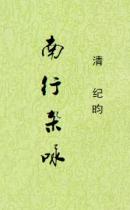 清 纪昀
南行杂咏